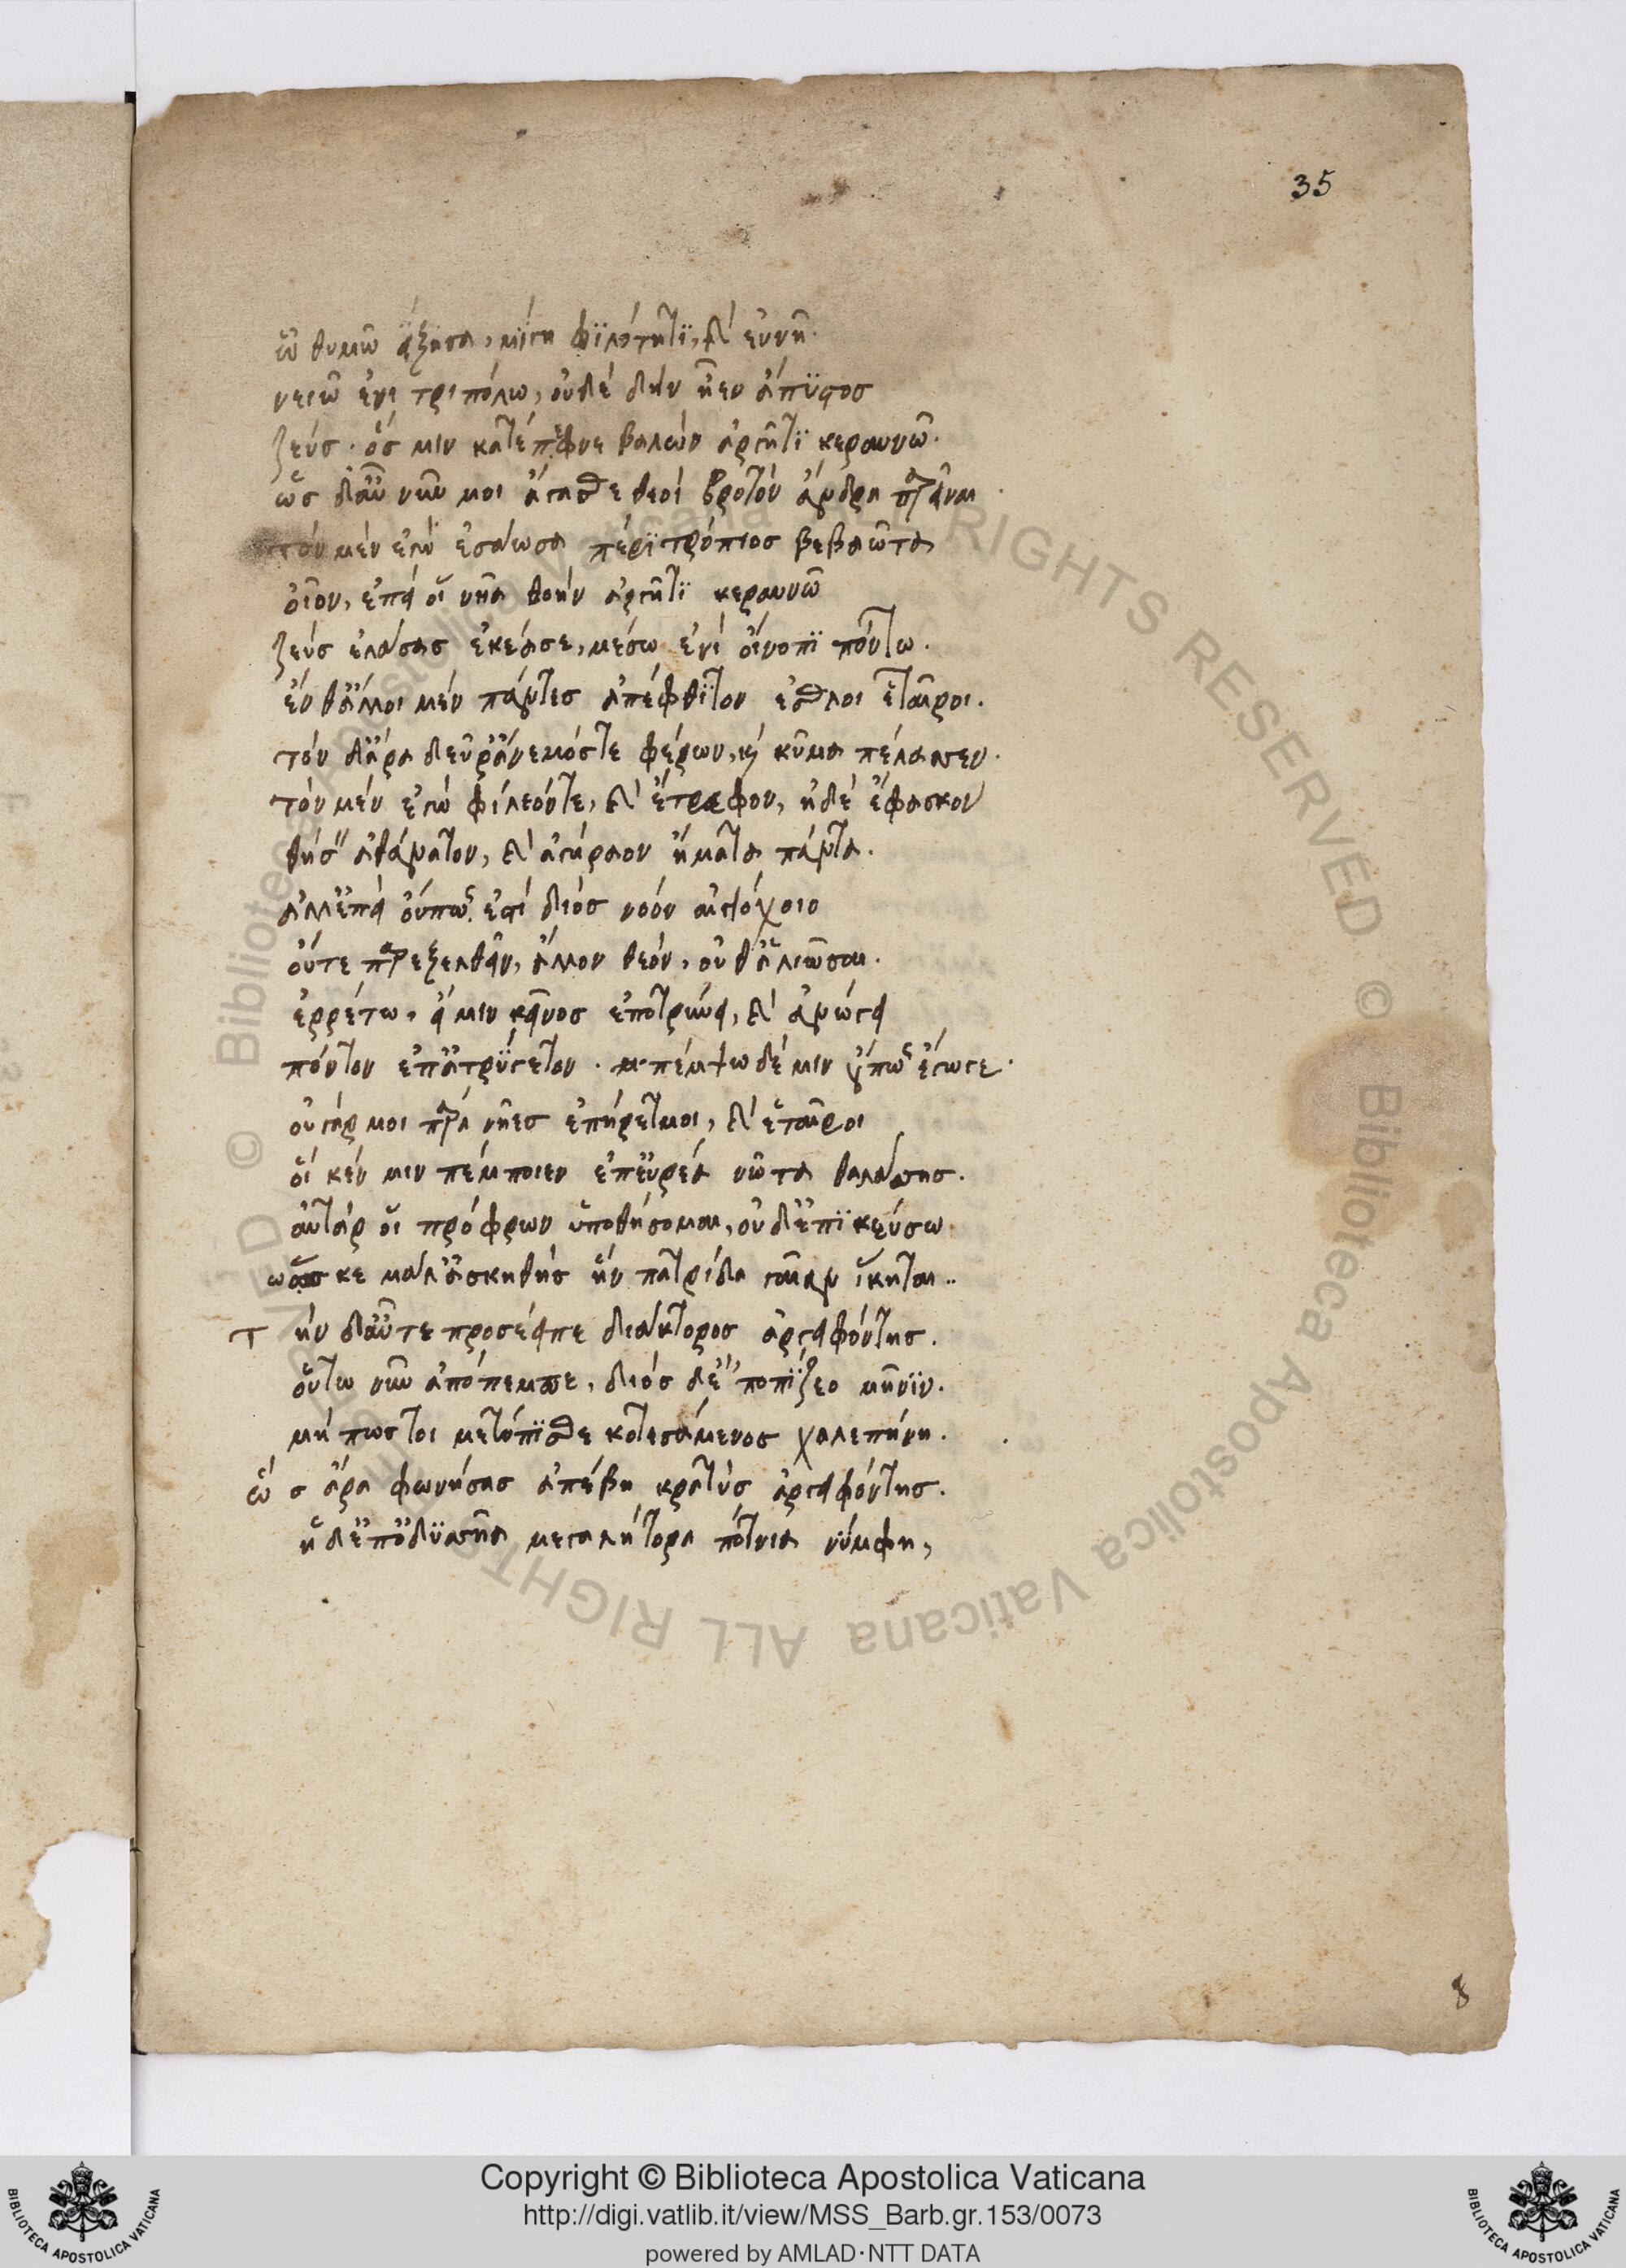 35
ᾧ θυμῷ εἴξασα, μίγη φϊλότητϊ, καὶ εὐνῆ.
νειῶ ἐνι τριπόλω, οὐδὲ δὴν ἦεν ἄπϋστος
ζεύς. ὅς μιν κατέπεφνε βαλὼν ἀργῆτϊ κεραυνῶ.
ὣς δαῦ νῦν μοι ἄγασθε θεοὶ βροτὸν ἄνδρα παρεῖναι.
τὸν μὲν ἐγὼ ἐσάωσα πέρϊ τρόπιος βεβαῶτα
οἶον, ἐπεί οἱ νῆα θοὴν ἀργῆτϊ κεραυνῶ
ζεὺς ἐλάσας ἐκέασε, μέσω ἐνὶ οἴνοπϊ πόντω.
ἔνθ ἄλλοι μὲν πάντες ἀπέφθϊτον ἐσθλοι ἑταῖροι.
τὸν δ ἄρα δεῦρ ἄνεμόςτε φέρων, καὶ κῦμα πέλασσεν.
τὸν μὲν ἐγὼ φίλεόντε, καὶ ἔτρεφον, ἠδὲ ἔφασκον
θήσ ἀθάνατον, καὶ ἀγήραον ἤματα πάντα.
ἀλλ ἐπεὶ οὔπως ἐστὶ διὸς νόον αἰγιόχοιο
οὔτε παρεξελθεῖν, ἄλλον θεόν, οὐθ ἁλιῶσαι.
ἐρρέτω. εἴ μιν κεῖνος ἐποτρύνει, καὶ ἀνώγει
πόντον ἐπ ἀτρύγετον. πέμψω δέ μιν οὔπω ἔγωγε.
οὐ γάρ μοι παρὰ νῆες ἐπήρετμοι, καὶ ἑταῖροι
οἵ κέν μιν πέμποιεν ἐπ εὐρέα νῶτα θαλάσσης.
αὐτάρ οἱ πρόφρων ὑποθήσομαι, οὐδ ἐπϊκεύσω
ὥς κε μάλ ἀσκηθὴς ἣν πατρίδα γαῖαν ἵκηται..
Τ ὴν δαὖτε προσέειπε διάκτορος ἀργειφόντης.
οὕτω νῦν ἀπόπεμπε, διὸς δ ἐποπϊζεο μῆνϊν.
μή πως τοι μετόπϊσθε κοτεσάμενος χαλεπήνη.
ὣ ς ἄρα φωνήσας ἀπέβη κρατὺς ἀργειφόντης.
ἡ δ ἐπ ὀδϋσσῆα μεγαλήτορα πότνια νύμφη,
8
© Biblioteca Apostolica Vaticana ALL RIGHTS RESERVED
Copyright © Biblioteca Apostolica Vaticana
http://digi.vatlib.it/view/MSS_Barb.gr.153/0073
powered by AMLAD·NTT DATA
BIBLIOTECA APOSTOLICA VATICANA
BIBLIOTECA APOSTOLICA VATICANA